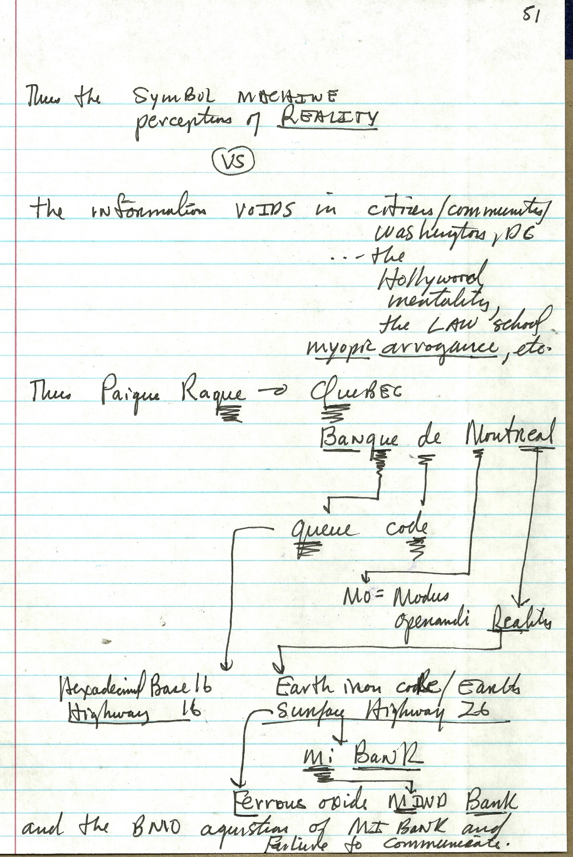 51
Thus the SYMBOL MACHINE
perception of REALITY
VS
the INFORMATION VOIDS in citizens/communities/
Washington, DC
... the
Hollywood
mentality,
the LAW school
myopic arrogance, etc.
Thus Paique Raque → QueBEC
Banque de Montreal
queue code
MO = Modus
openandi Reality
Hexadecimal Base 16 Earth iron core/Earth
Highway 16 Sunray Highway 26
Mi BanK
Ferrous oxide MIND Bank
and the BMO aquistion of MI BANK and
Failure to communicate.